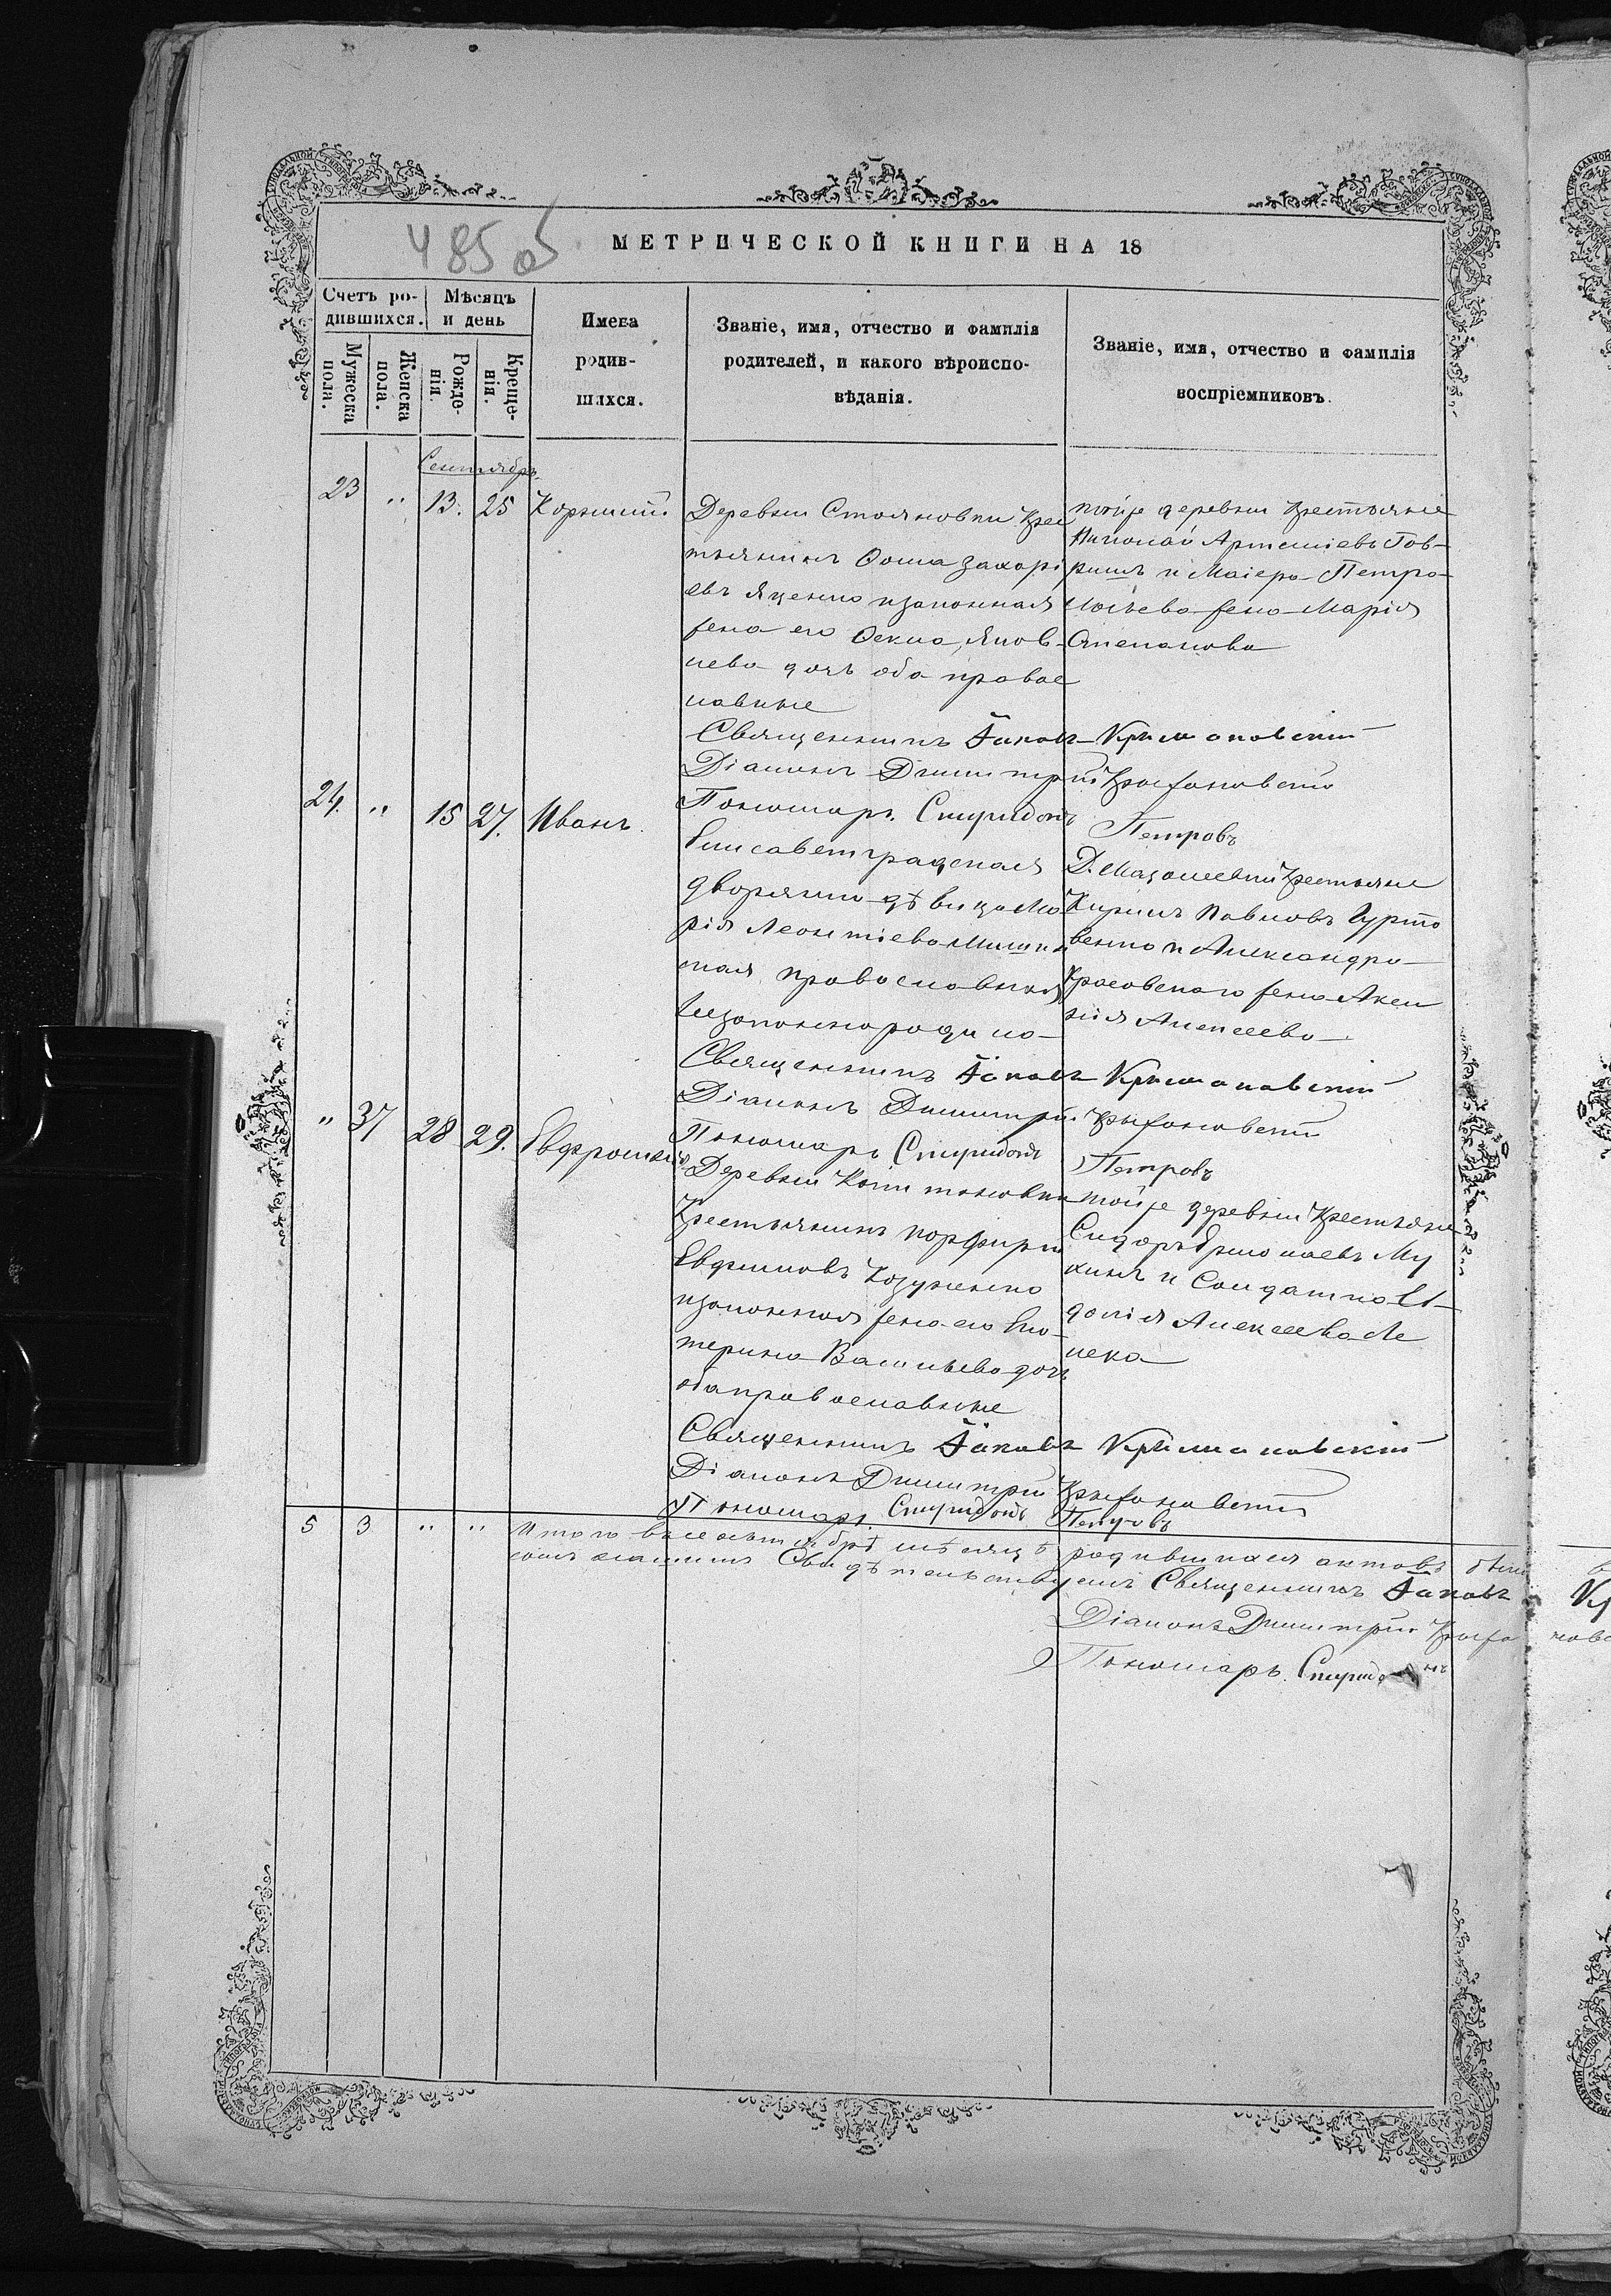 485 об
МЕТРИЧЕСКОЙ КНИГИ НА 18
Счетъ ро-
дившихся.
Мужеска
пола.
Женска
пола.
Мѣсяцъ
и день
Рожде-
нія.
Креще-
нія.
Имена
родив-
шихся.
Званіе, имя, отчество и фамилія
родителей, и какого вѣроиспо-
вѣданія.
Званіе, имя, отчество и фамилія
воспріемниковъ.
Сентябрь
23 " 13. 25 Корнилій
Деревни Стояновки крес
тьянинъ Фома Захарі
евъ Яценко и законная
жена его Фекла, Яков-
лева дочь оба правос
лавные
тойже деревни крестьяне
Николай Артеміевъ Гав-
ришъ и Маіера Петра
жена Марія
Степанова
Священникъ Іаковъ Крыжановскій
Діаконъ Димитрій Крыжановскій
Пономарь Спиридонъ Петровъ
24. " 15 27. Иванъ
Елисаветградская
дворянка дѣвица Ма
рія Леонтіева
православная
незаконнородила
Д. крестьяне
Кирилъ Павловъ Гурто
венко и Александра
жена Аксе
нія Алексеева
Священникъ Іаковъ Крыжановскій
Діаконъ Димитрій Крыжановскій
Пономарь Спиридонъ Петровъ
" 37 28 29. Евфросинія
Деревни
Крестьянинъ Порфирій
Евфимовъ Козуненко
и законная жена его Ека-
терина Васильева дочь
оба православные
тойже деревни крестьяне
Сидоръ Ермолаевъ Му
хинъ и Солдатка Ев-
докія Алексеева Ле
лека
Священникъ Іаковъ Крыжановскій
Діаконъ Димитрій Крыжановскій
Пономарь Спиридонъ Петровъ
5 3 " " Итого въ сентябрѣ мѣсяцѣ родившихся актовъ
Свидѣтельствуемъ Священникъ Іаковъ
Діаконъ Димитрій Крыжа
Пономарь Спиридонъ